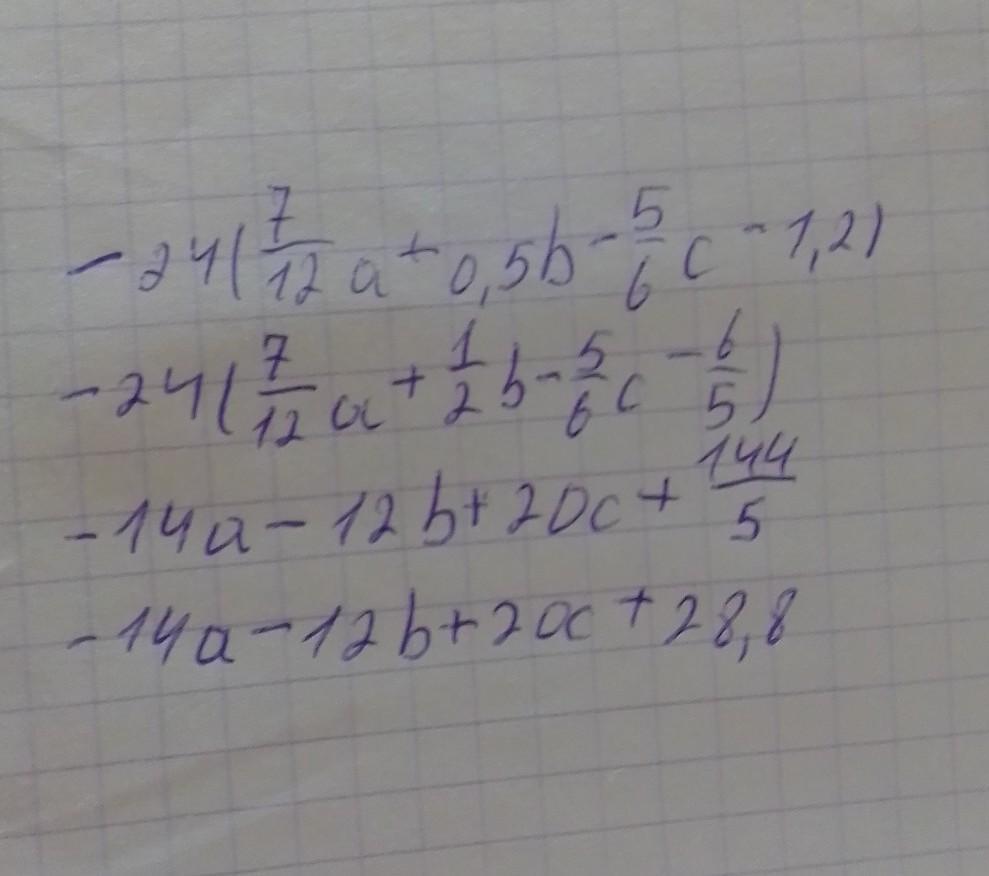 -24(7/12 a + 0,5b - 5/6 c - 1,2)
-24(7/12 a + 1/2 b - 5/6 c - 6/5)
-14a - 12b + 20c + 144/5
-14a - 12b + 20c + 28,8